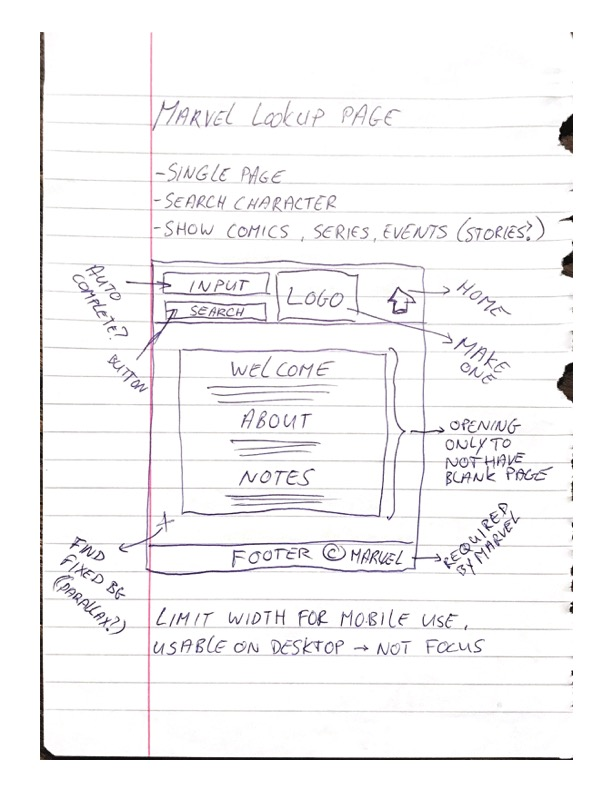 MARVEL LOOKUP PAGE
-SINGLE PAGE
-SEARCH CHARACTER
-SHOW COMICS, SERIES, EVENTS (STORIES?)
AUTO
COMPLETE?
INPUT
SEARCH
BUTTON
LOGO
HOME
MAKE
ONE
WELCOME
ABOUT
NOTES
OPENING
ONLY TO
NOT HAVE
BLANK PAGE
FIND
FIXED BG
(PARALLAX?)
FOOTER © MARVEL
REQUIRED
BY MARVEL
LIMIT WIDTH FOR MOBILE USE,
USABLE ON DESKTOP → NOT FOCUS